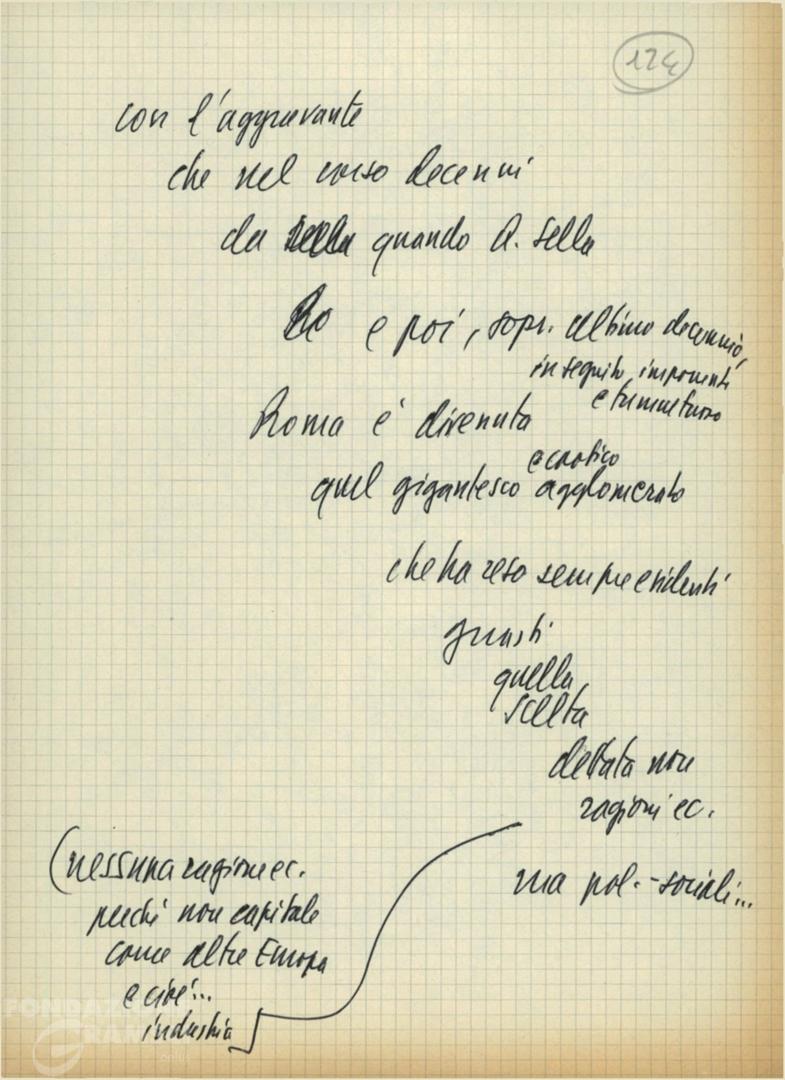 124
con l'aggravante
che nel corso decenni
da quando Q. Sella
Ro e poi, sopr. ultimo decennio,
in seguito imponenti
e tumultuoso
Roma è divenuta
e caotico
quel gigantesco agglomerato
che ha reso sempre evidenti
guasti
quella
scelta
dettata non
ragioni ec.
ma pol.-sociali...
(nessuna ragione ec.
perché non capitale
come altre Europa
e cioè...
industria
FONDAZIONE